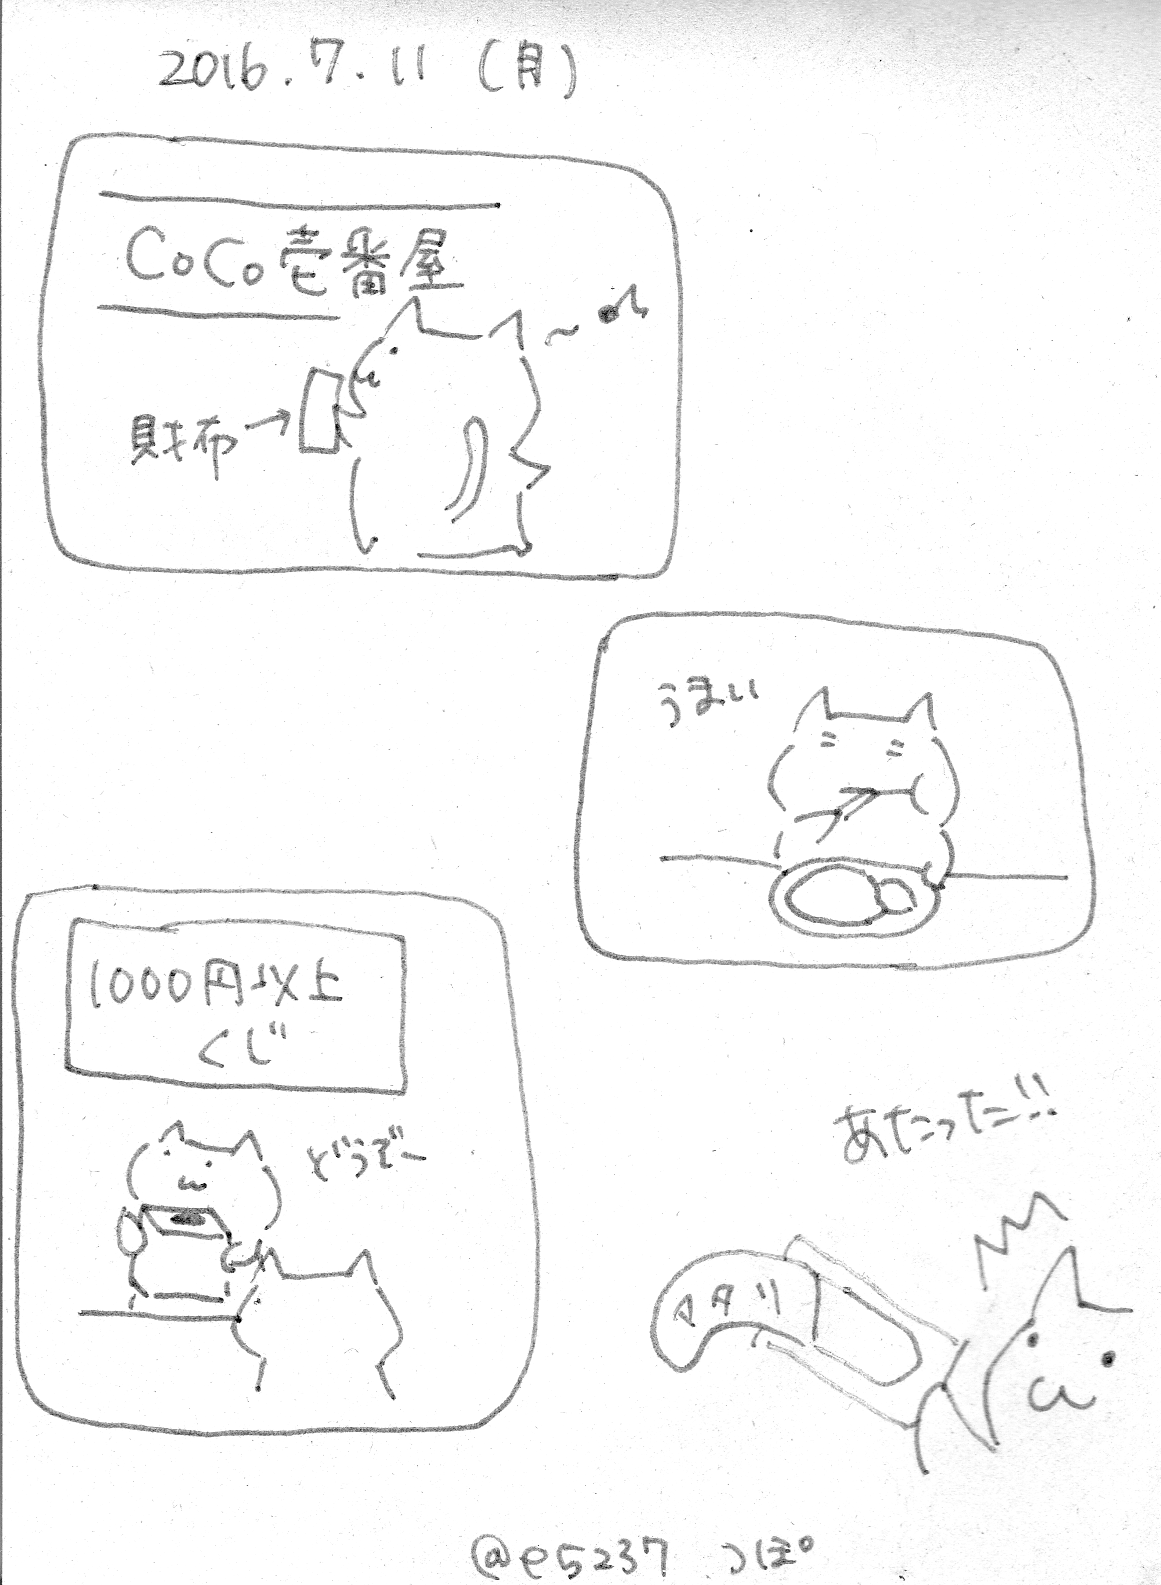 2016.7.11 (月)
CoCo壱番屋
財布→
うまい
1000円以上
くじ
どうぞー
あたった!!
アタリ
@e5237 つぽ